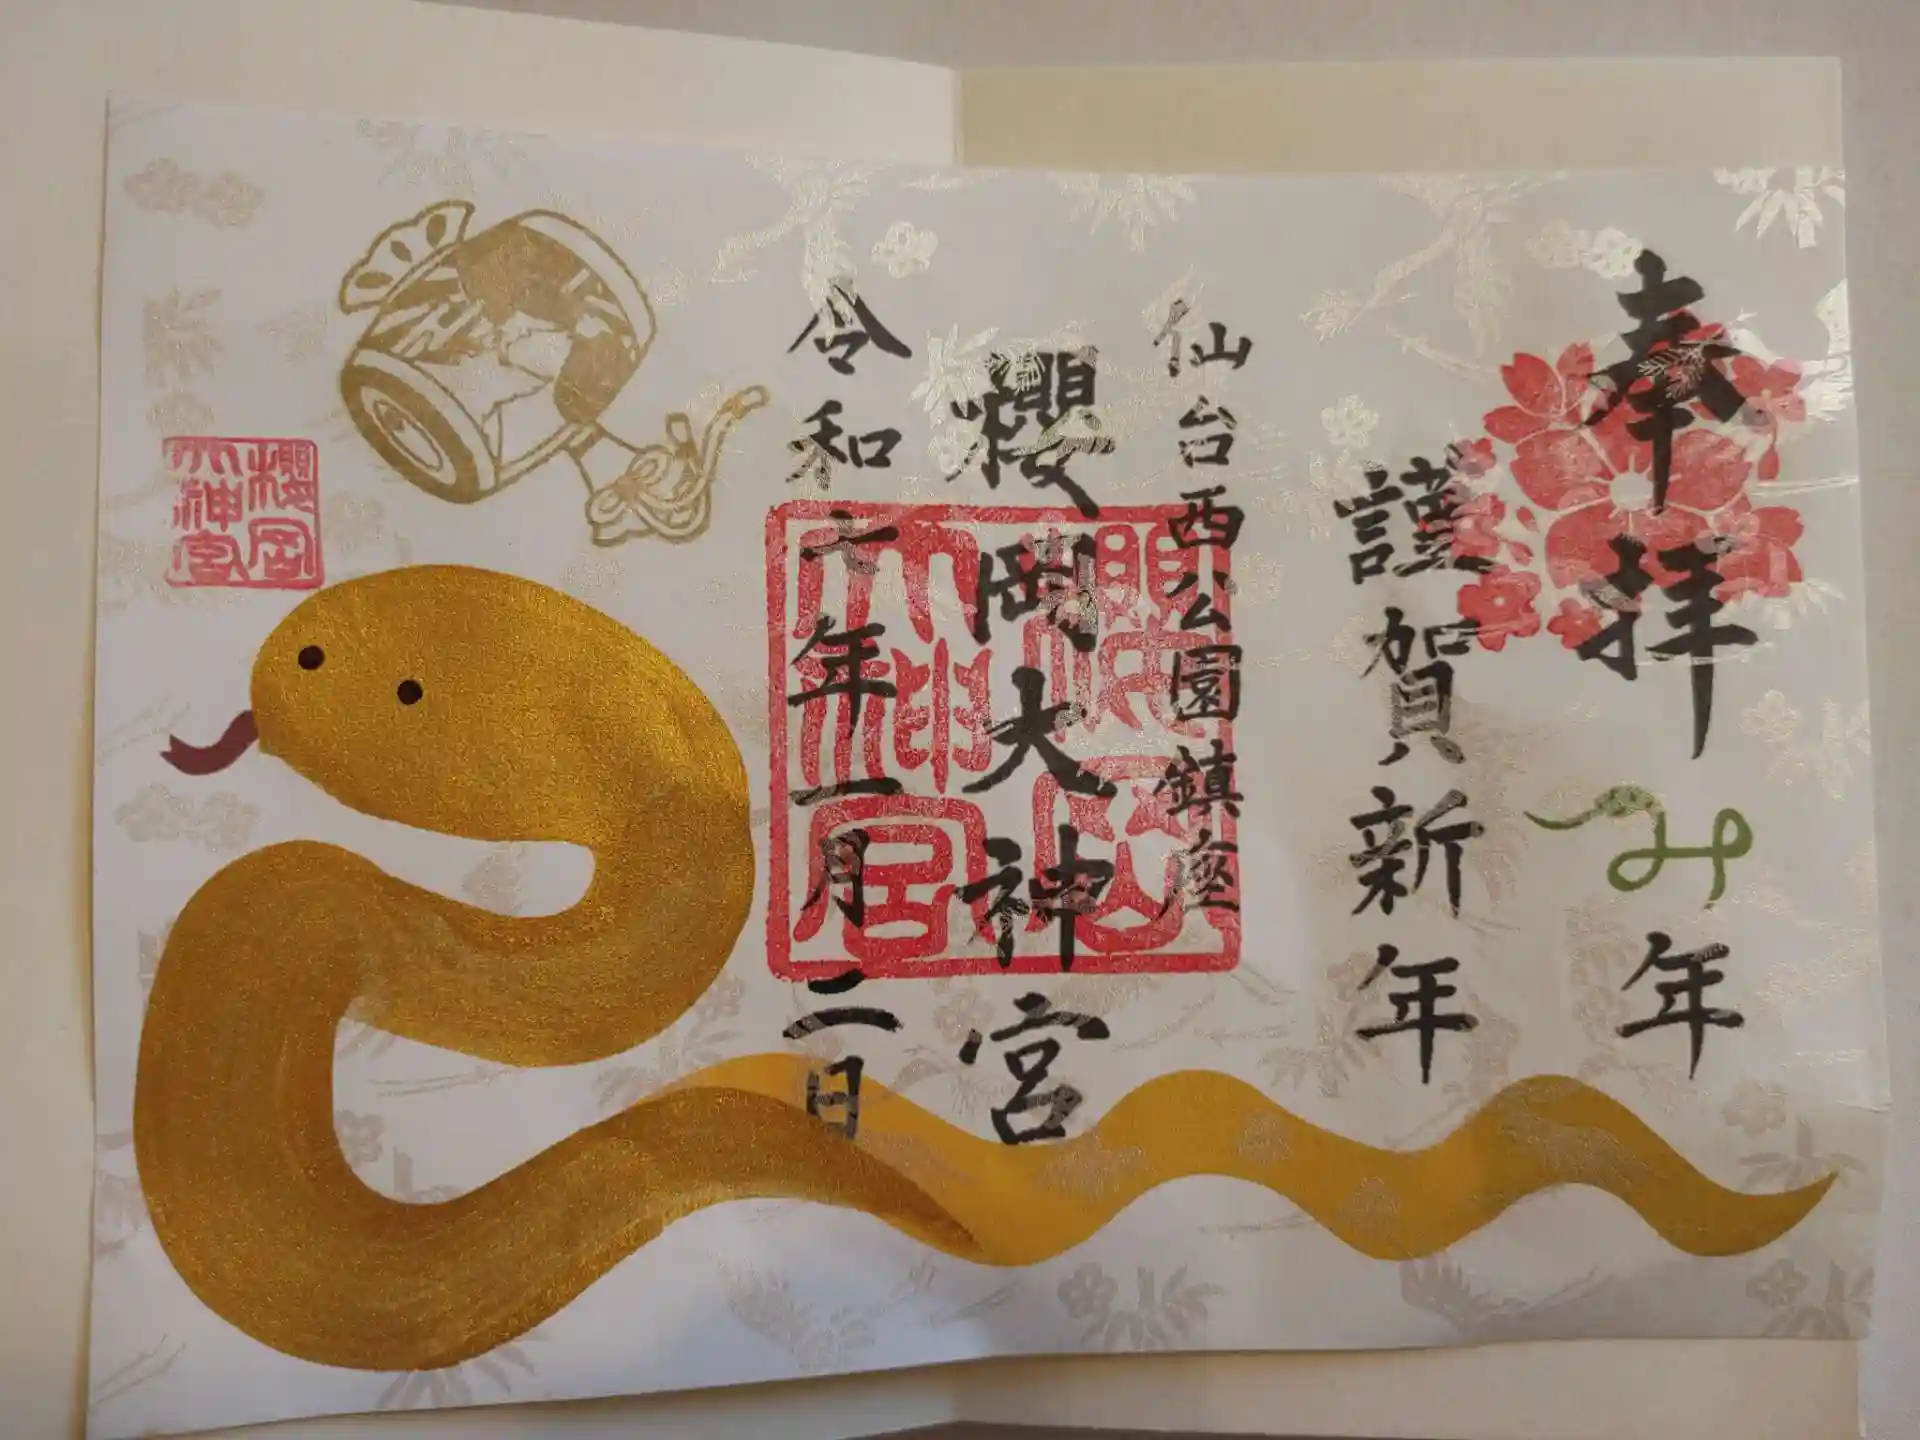 奉拝 み年
謹賀新年
仙台西公園鎮座
櫻岡大神宮
令和七年一月二日
櫻岡
大神宮
櫻岡
大神宮